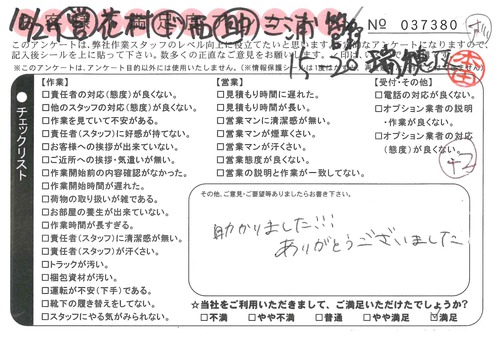 № 037380
このアンケートは、弊社作業スタッフのレベル向上に役立てたいと思います
記入後シールを上に貼って下さい。
※このアンケートは、アンケート目的以外には使用いたしません。
チェックリスト
【作業】
□責任者の対応(態度)が良くない。
□他のスタッフの対応(態度)が良くない。
□作業を見ていて不安がある。
□責任者(スタッフ)に好感が持てない。
□お客様への挨拶が出来ていない。
□ご近所への挨拶・気遣いが無い。
□作業開始前の内容確認がなかった。
□作業開始時間が遅れた。
□荷物の取り扱いが雑である。
□お部屋の養生が出来ていない。
□作業時間が長すぎる。
□責任者(スタッフ)に清潔感が無い。
□責任者(スタッフ)が汗くさい。
□トラックが汚い。
□梱包資材が汚い。
□運転が不安(下手)である。
□靴下の履き替えをしてない。
□スタッフにやる気がみられない。
【営業】
□見積もり時間に遅れた。
□見積もり時間が長い。
□営業マンに清潔感が無い。
□営業マンが煙草くさい。
□営業マンが汗くさい。
□営業態度が良くない。
□営業の説明と作業が一致してない。
【受付・その他】
□電話の対応が良くない。
□オプション業者の説明
・作業が良くない。
□オプション業者の対応
(態度)が良くない。
その他、ご意見・ご要望等ありましたらお書き下さい。
助かりました!!!
ありがとうございました
☆当社をご利用いただきまして、ご満足いただけたでしょうか?
□不満 □やや不満 □普通 □やや満足 ☑満足